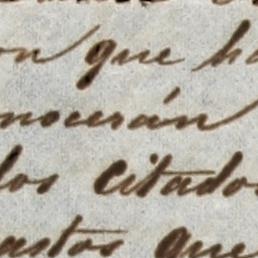 on que ha
nocerán
los citados
astos que